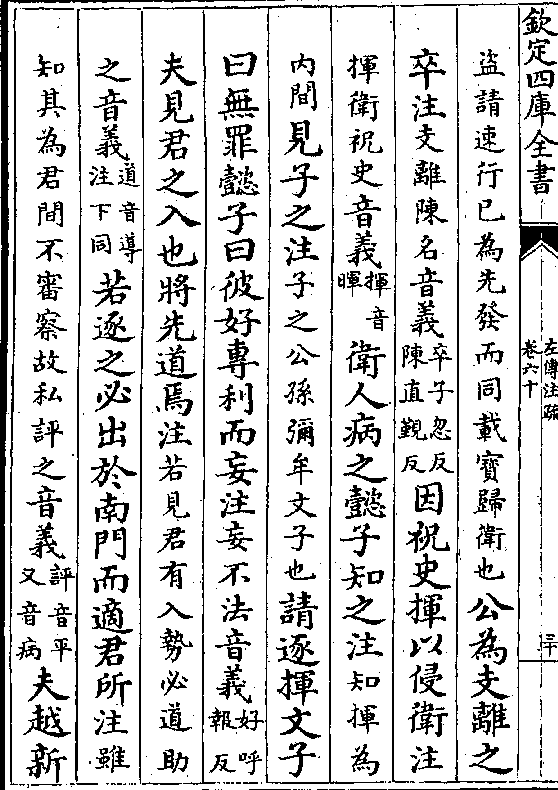 欽定四庫全書
左傳注疏
卷六十
三十
盜請速行已為先發而同載寶歸衛也公為支離之
卒注支離陳名音義卒子忽反陳直覲反因祝史揮以侵衛注
揮衛祝史音義揮音暉衛人病之懿子知之注知揮為
內間見子之注子之公孫彌牟文子也請逐揮文子
曰無罪懿子曰彼好專利而妄注妄不法音義好呼報反
夫見君之入也將先道焉注若見君有入勢必道助
之音義道音導注下同若逐之必出於南門而適君所注雖
知其為君間不審察故私評之音義評音平又音病夫越新